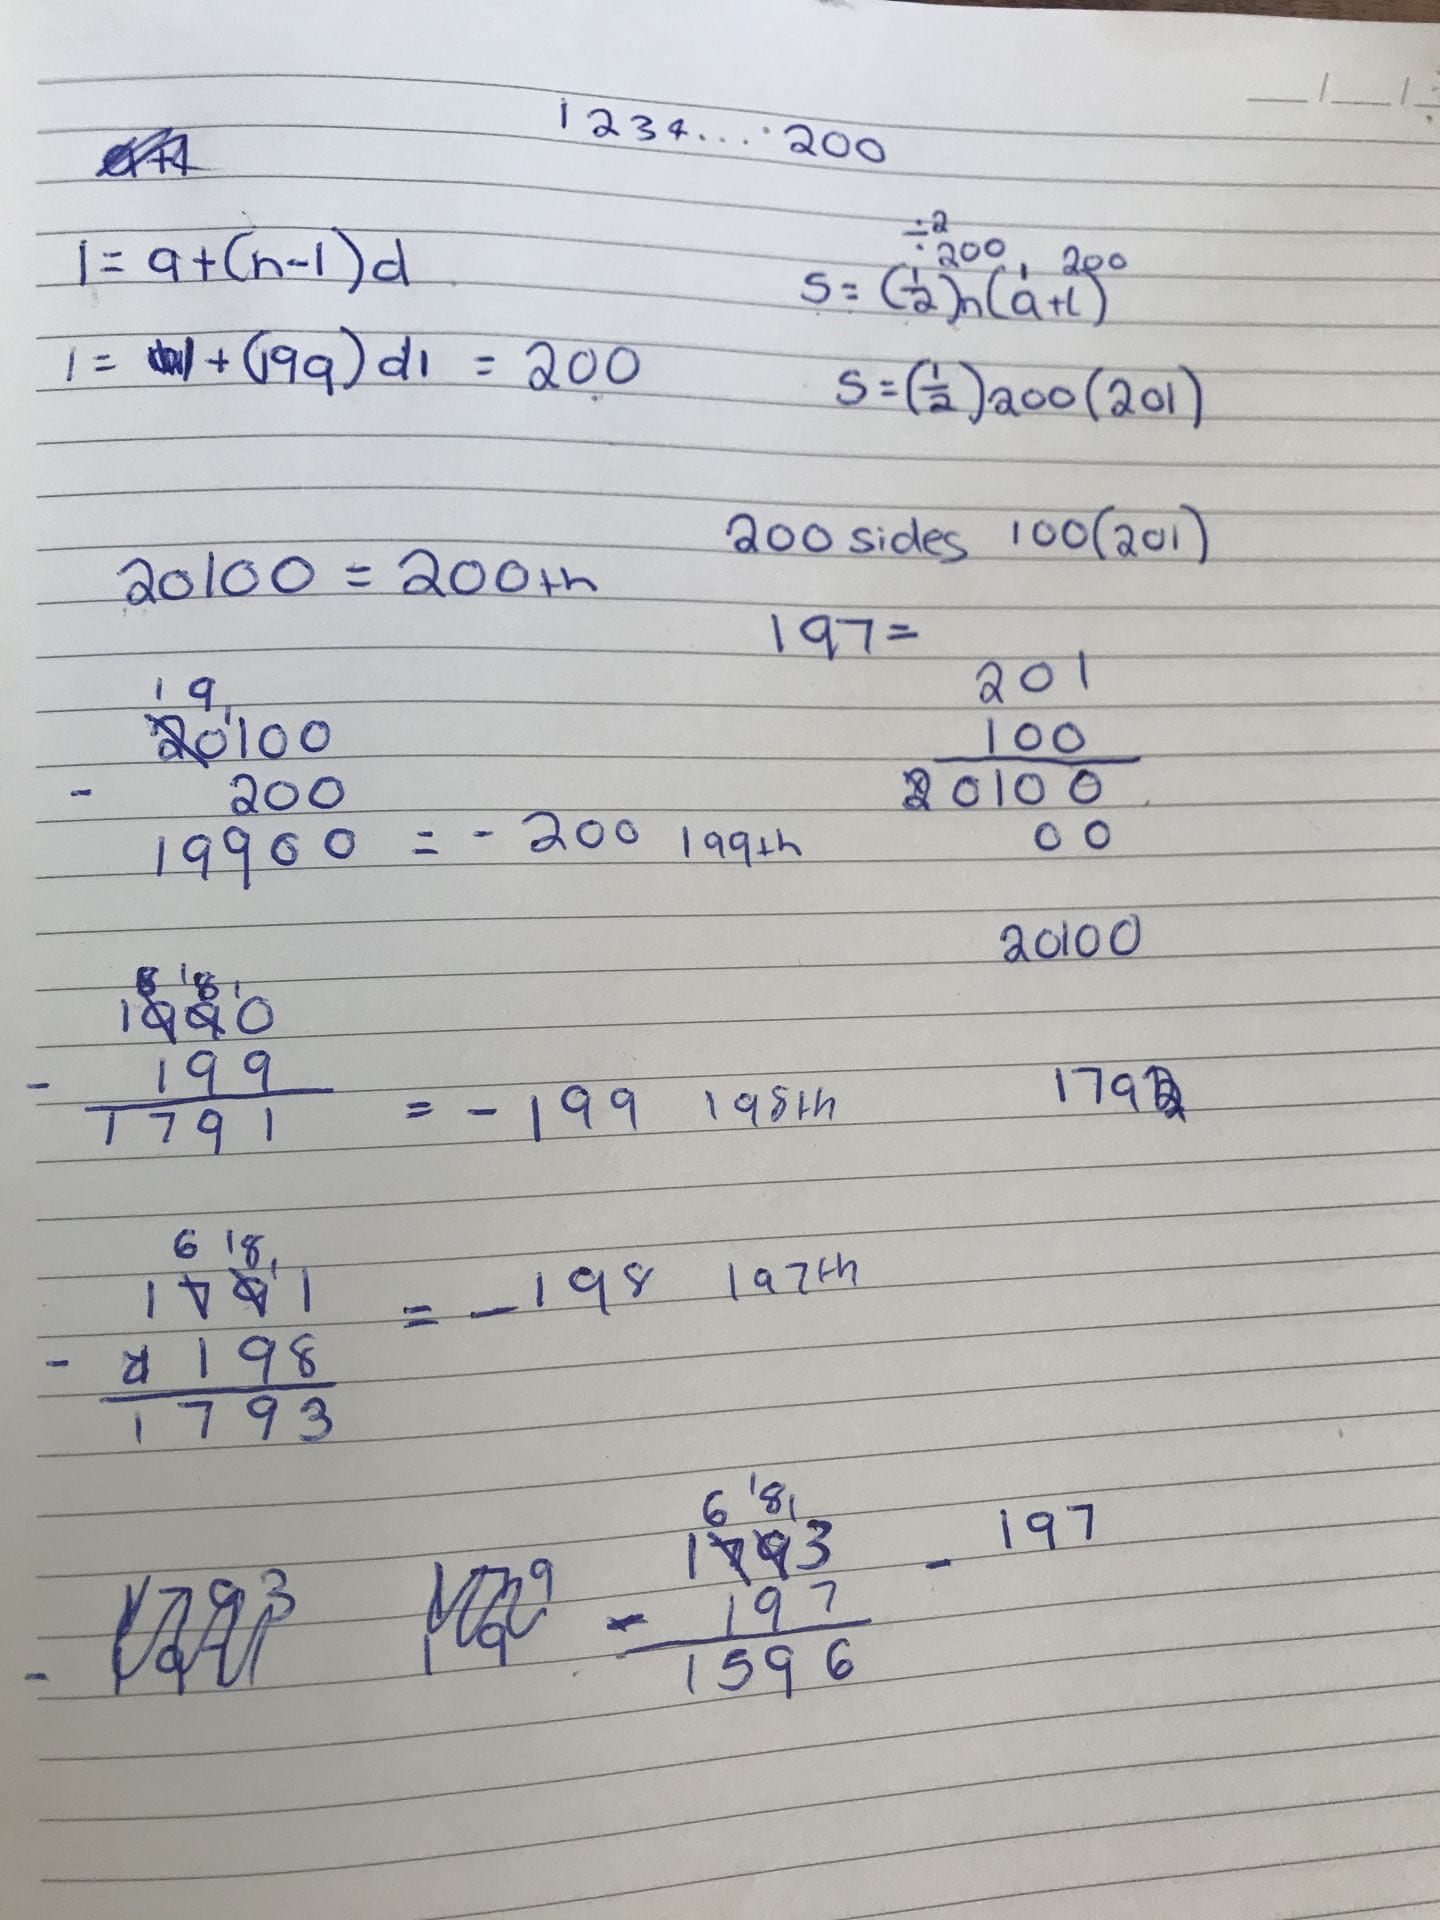 1 2 3 4 .... 200
l = a+(n-1)d
÷2
200 1 200
S = (1/2)n(a+l)
l = 1 + (199)d1 = 200
S = (1/2)200(201)
200 sides 100(201)
20100 = 200th
197 =
201
100
20100
00
20100
1 9 1
20100
- 200
19900 = - 200 199th
8 18 1
1990
- 199
1791 = - 199 198th
179
6 18 1
1791
- 198
1793
= - 198 197th
6 18 1
1793 - 197
- 197
1596